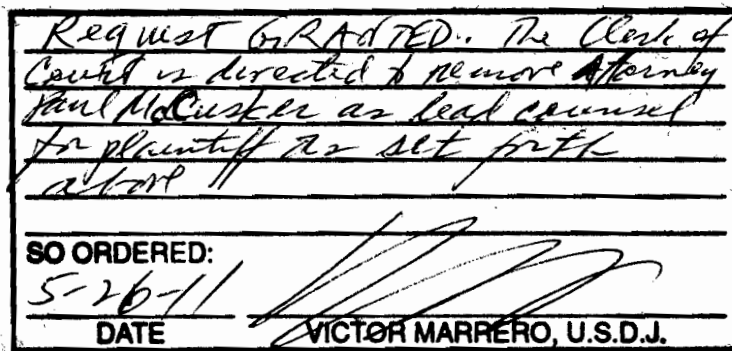 Request GRANTED. The Clerk of
Court is directed to remove Attorney
Paul McCusker as lead counsel
for plaintiff as set forth
above
SO ORDERED:
5-26-11
DATE VICTOR MARRERO, U.S.D.J.